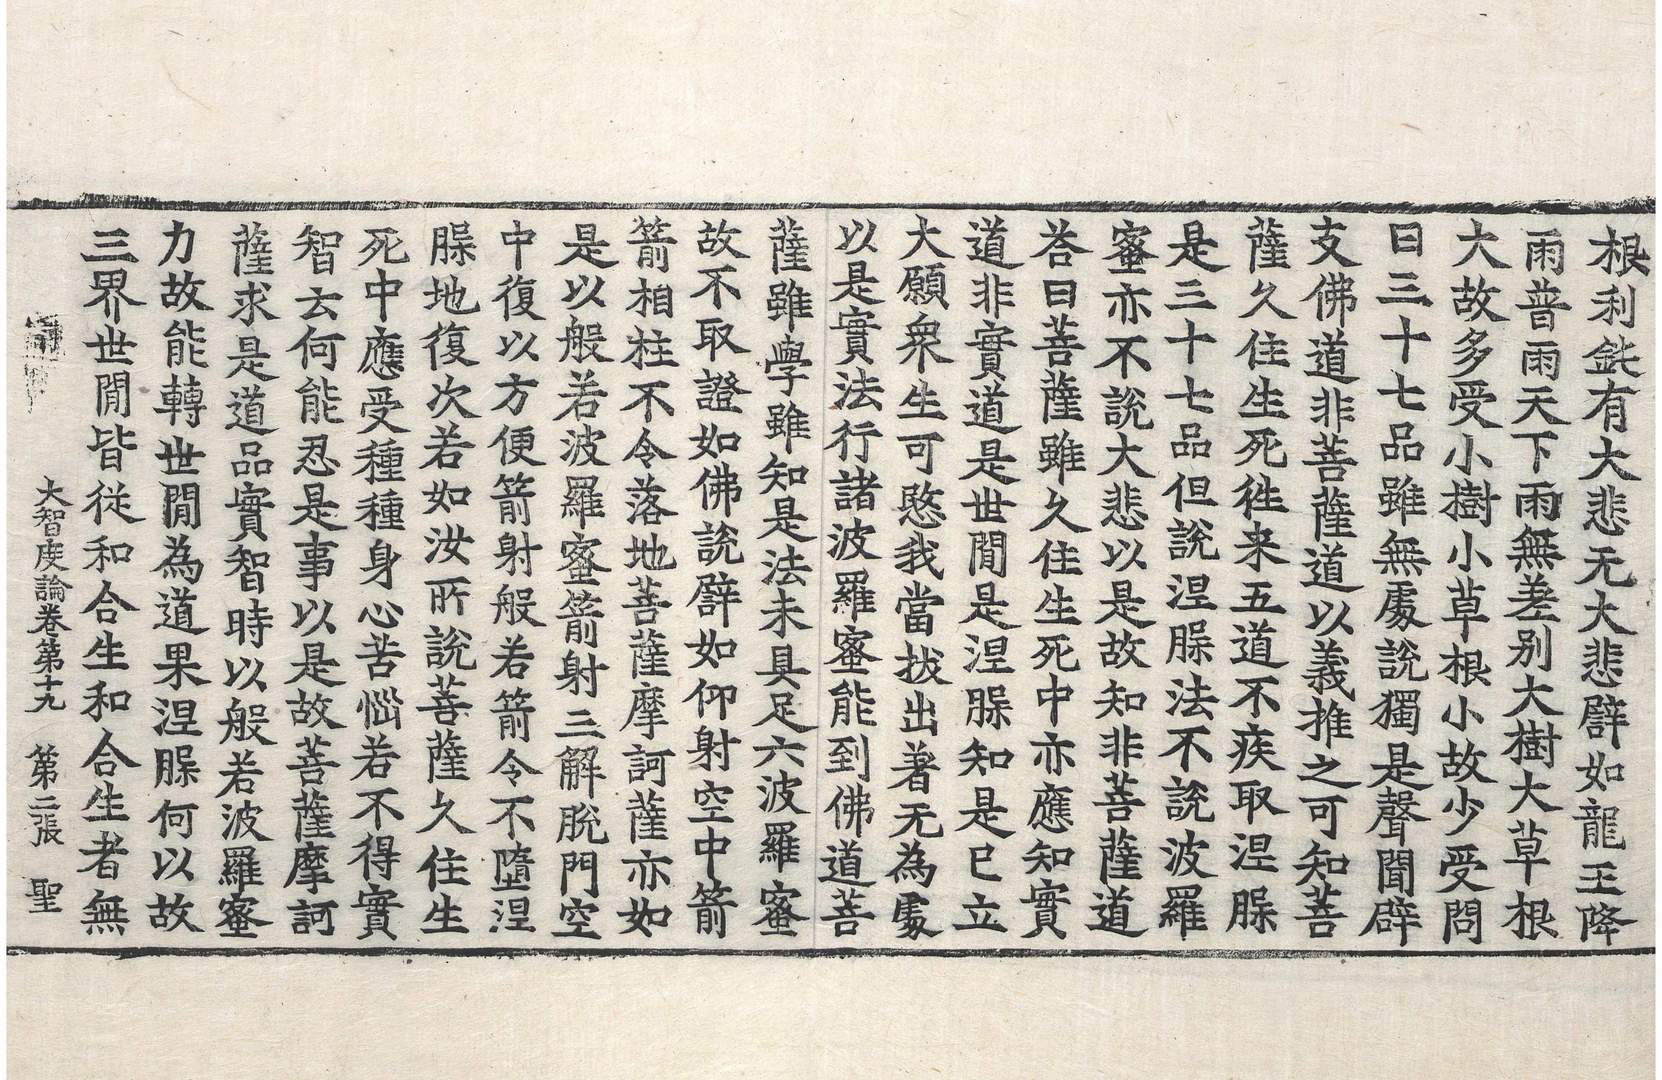 根利鈍有大悲无大悲辟如龍王降
雨普雨天下雨無差別大樹大草根
大故多受小樹小草根小故少受問
曰三十七品雖無處說獨是聲聞辟
支佛道非菩薩道以義推之可知菩
薩久住生死徃来五道不疾取涅槃
是三十七品但說涅槃法不說波羅
蜜亦不說大悲以是故知非菩薩道
荅曰菩薩雖久住生死中亦應知實
道非實道是世閒是涅槃知是已立
大願衆生可愍我當拔出著无為處
以是實法行諸波羅蜜能到佛道菩
薩雖學雖知是法未具足六波羅蜜
故不取證如佛說辟如仰射空中箭
箭相柱不令落地菩薩摩訶薩亦如
是以般若波羅蜜箭射三解脫門空
中復以方便箭射般若箭令不墮涅
槃地復次若如汝所說菩薩久住生
死中應受種種身心苦惱若不得實
智云何能忍是事以是故菩薩摩訶
薩求是道品實智時以般若波羅蜜
力故能轉世閒為道果涅槃何以故
三界世閒皆從和合生和合生者無
大智度論卷第十九 第二張 聖